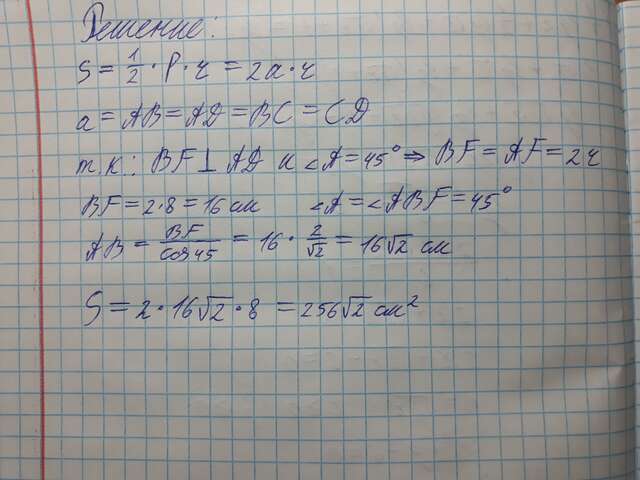 Решение:
S = 1/2 · P · r = 2a · r
a = AB = AD = BC = CD
т.к.: BF ⊥ AD и ∠A = 45° ⇒ BF = AF = 2r
BF = 2·8 = 16 см ∠A = ∠ABF = 45°
AB = BF/cos45 = 16 · 2/√2 = 16√2 см
S = 2 · 16√2 · 8 = 256√2 см²